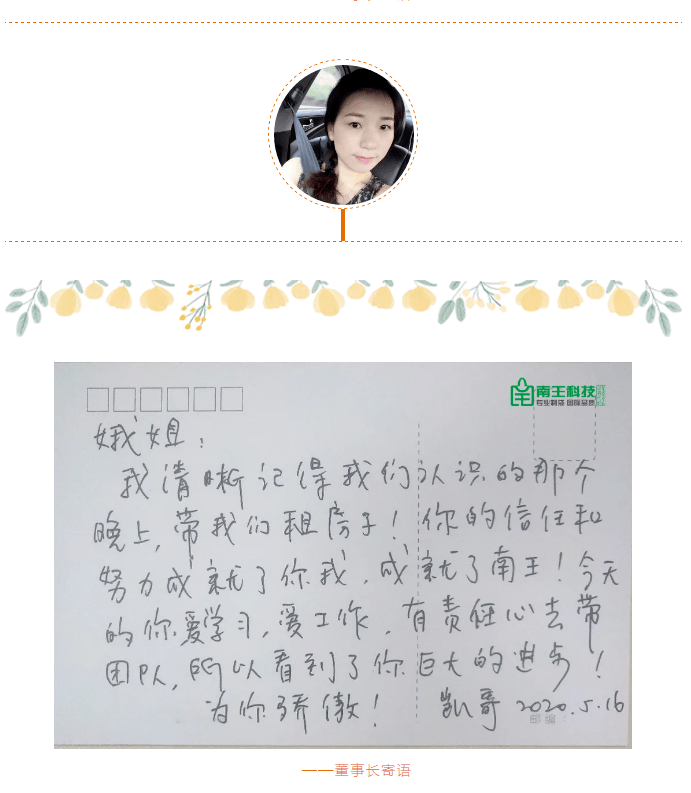 南王科技
专业制造 国际品质
娥姐：
我清晰记得我们认识的那个
晚上，带我们租房子！你的信任和
努力成就了你我，成就了南王！今天
的你爱学习，爱工作，有责任心去带
团队，所以看到了你巨大的进步！
为你骄傲！ 凯哥 2020.5.16
邮编
——董事长寄语